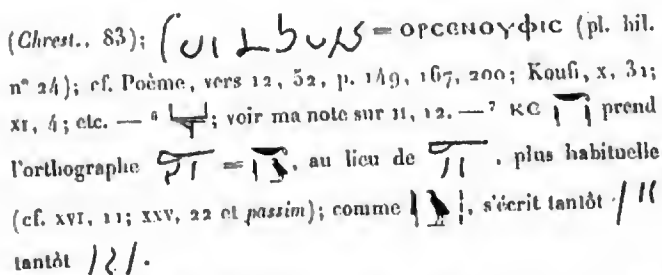 (Chrest., 83); = ΟΡϹЄΝΟΥΦΙϹ (pl. bil.
n° 24); cf. Poème, vers 12, 52, p. 149, 167, 200; Koufi, x, 31;
xi, 4; etc. — ⁶ ; voir ma note sur 11, 12. — ⁷ ΚϾ prend
l'orthographe = , au lieu de , plus habituelle
(cf. xvi, 11; xxv, 22 et passim); comme , s'écrit tantôt
tantôt .